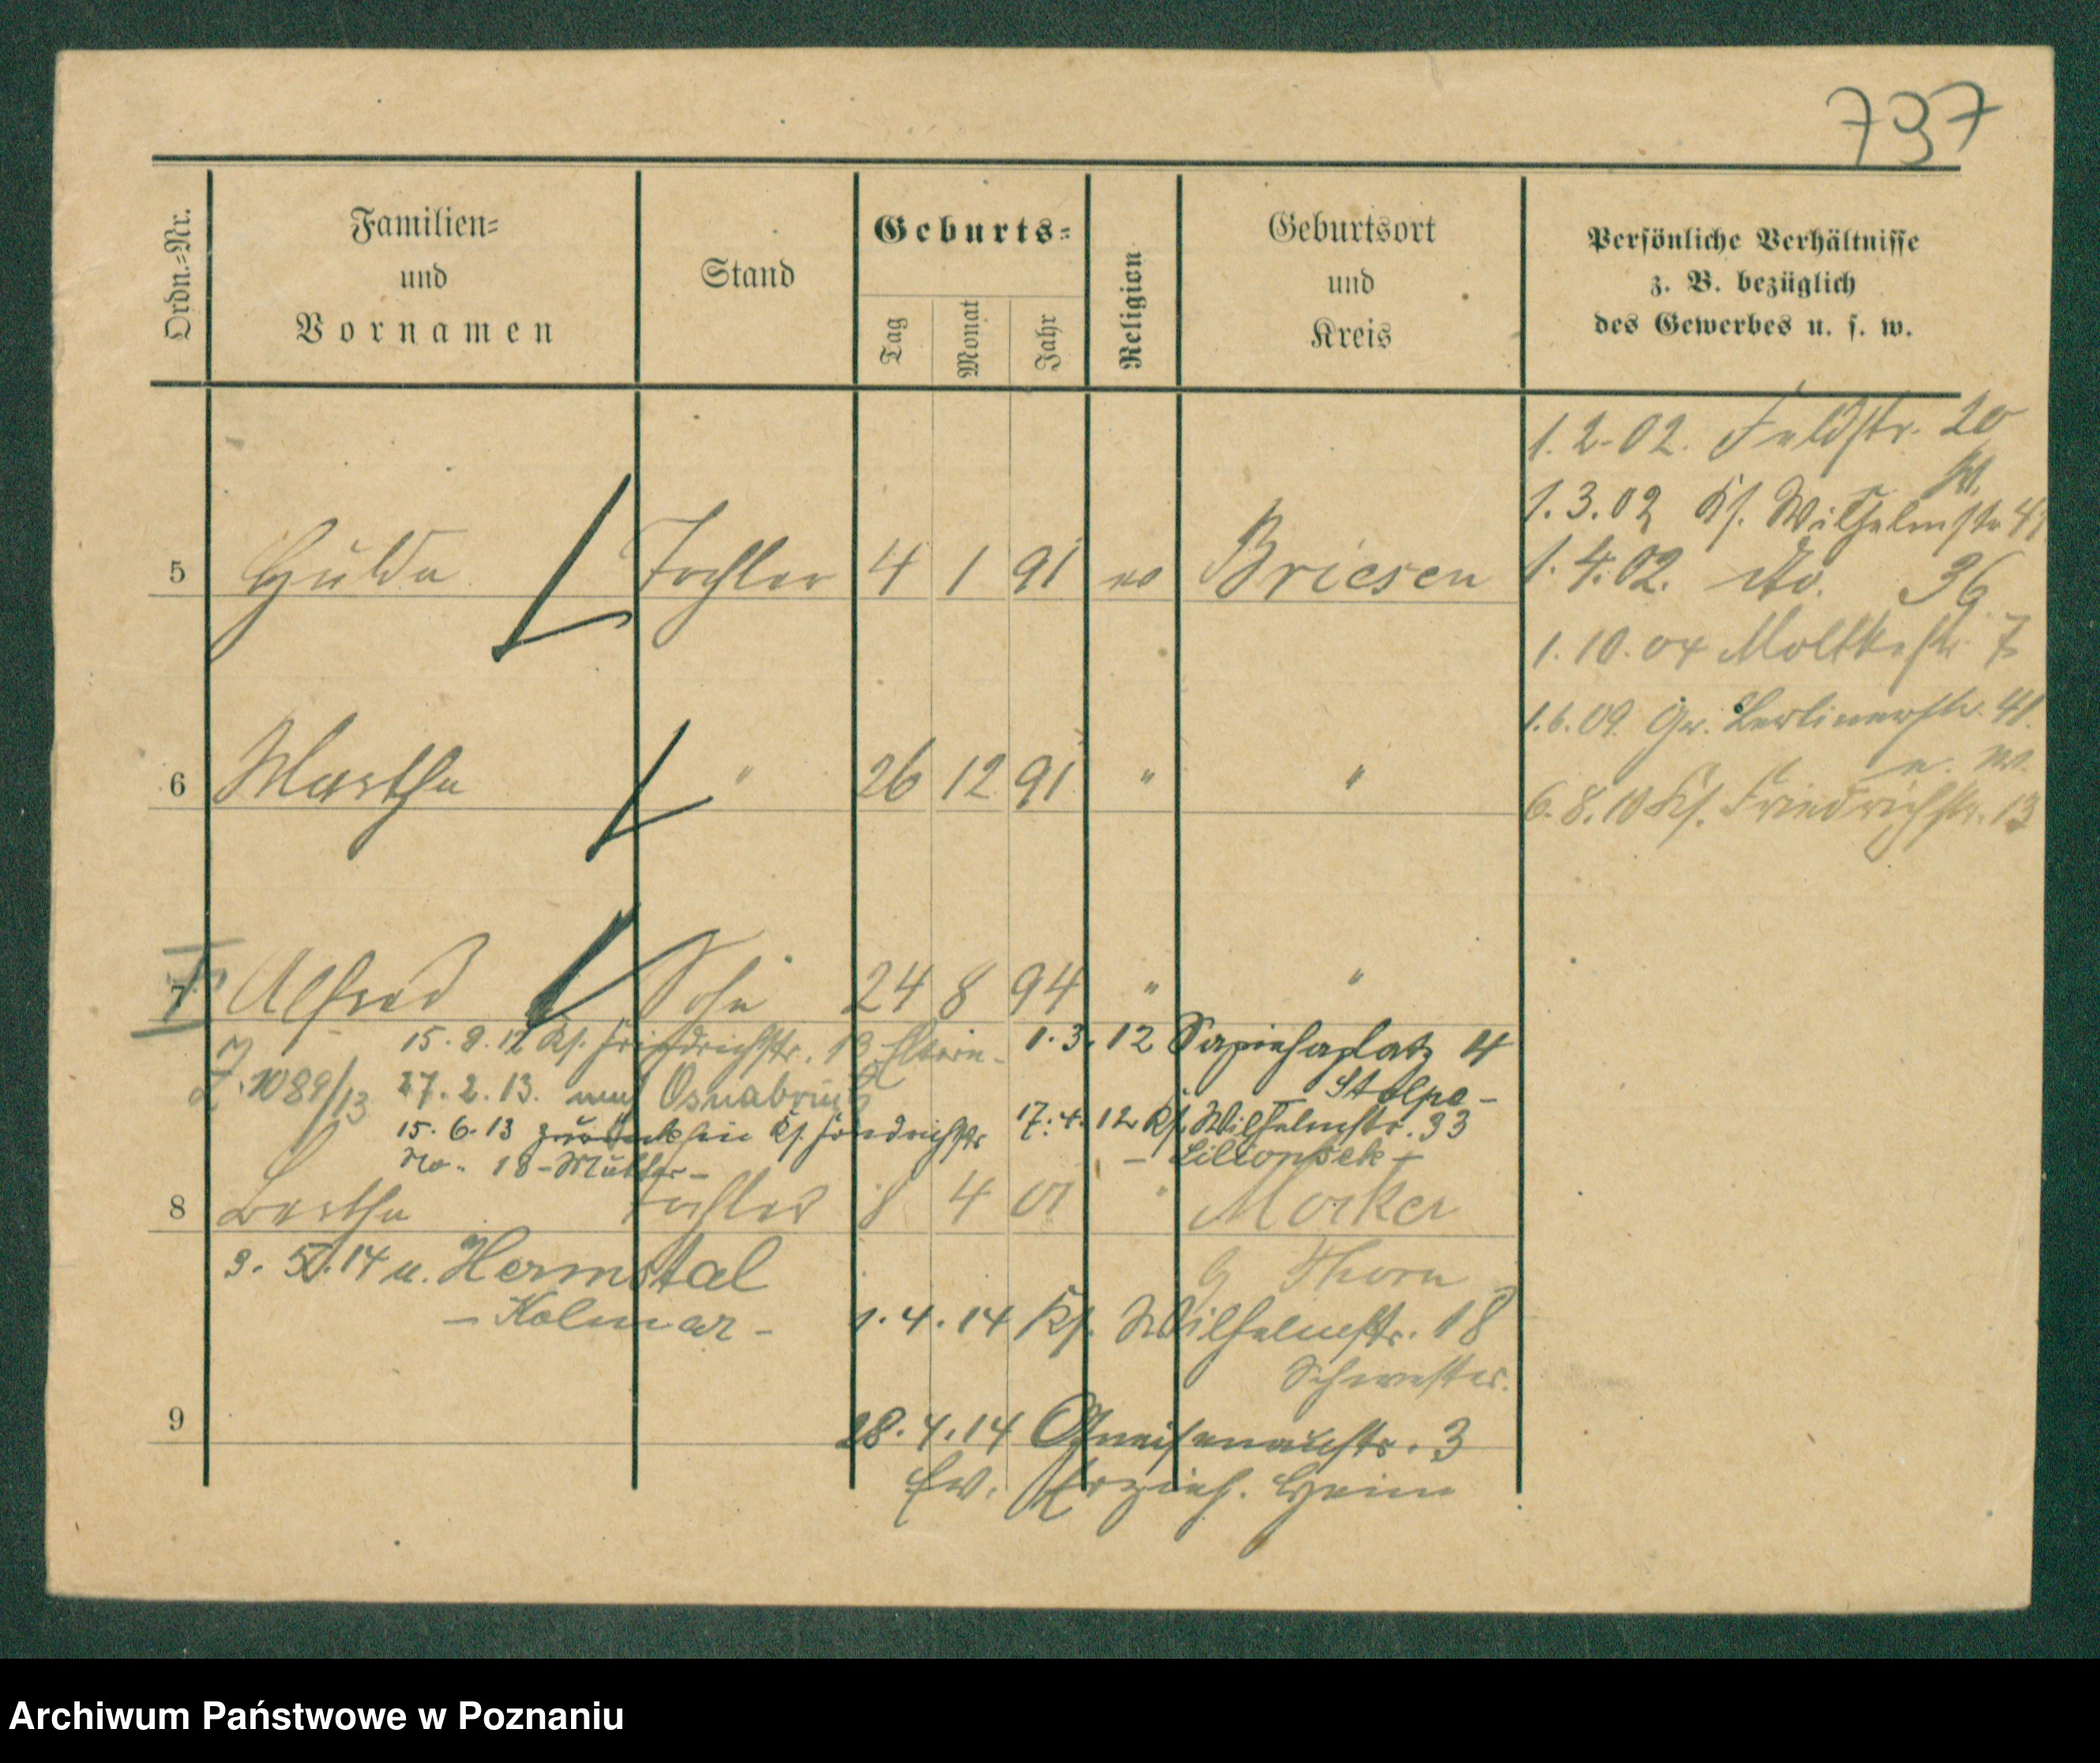 737
Ordn.-Nr.
Familien-
und
Vornamen
Stand
Geburts-
Tag
Monat
Jahr
Religion
Geburtsort
und
Kreis
Persönliche Verhältnisse
z. B. bezüglich
des Gewerbes u. s. w.
1.2.02. Feldstr. 20
1.3.02 Ks. Wilhelmstr.
5 Hulda Tochter 4 1 91 ev Briesen
1.4.02. do. 36
1.10.04 Moltkestr. 7
1.6.09. Gr. Berlinerstr. 41.
6 Martha " 26 12 91 " "
6.8.10 Ks. Friedrichstr. 13
7 Alfred Sohn 24 8 94 " "
15.8.12 Ks. Friedrichstr. 13 Eltern-
1.3.12 Sapiehaplatz 4
- Stolpe -
J. 1089/13
27.2.13. nach Osnabrück
17.4.12 Ks. Wilhelmstr. 33
15.6.13 zurück hier Ks. Friedrichstr
No. 18 - Mutter -
8 Bertha Tochter 8 4 01 " Mocker
Thorn
3.5.14 n. Hermstal
- Kolmar -
1.4.14 Ks. Wilhelmstr. 18
Schwester.
9
28.4.14 Gneisenaustr. 3
Ev. Erzieh. Heim
Archiwum Państwowe w Poznaniu